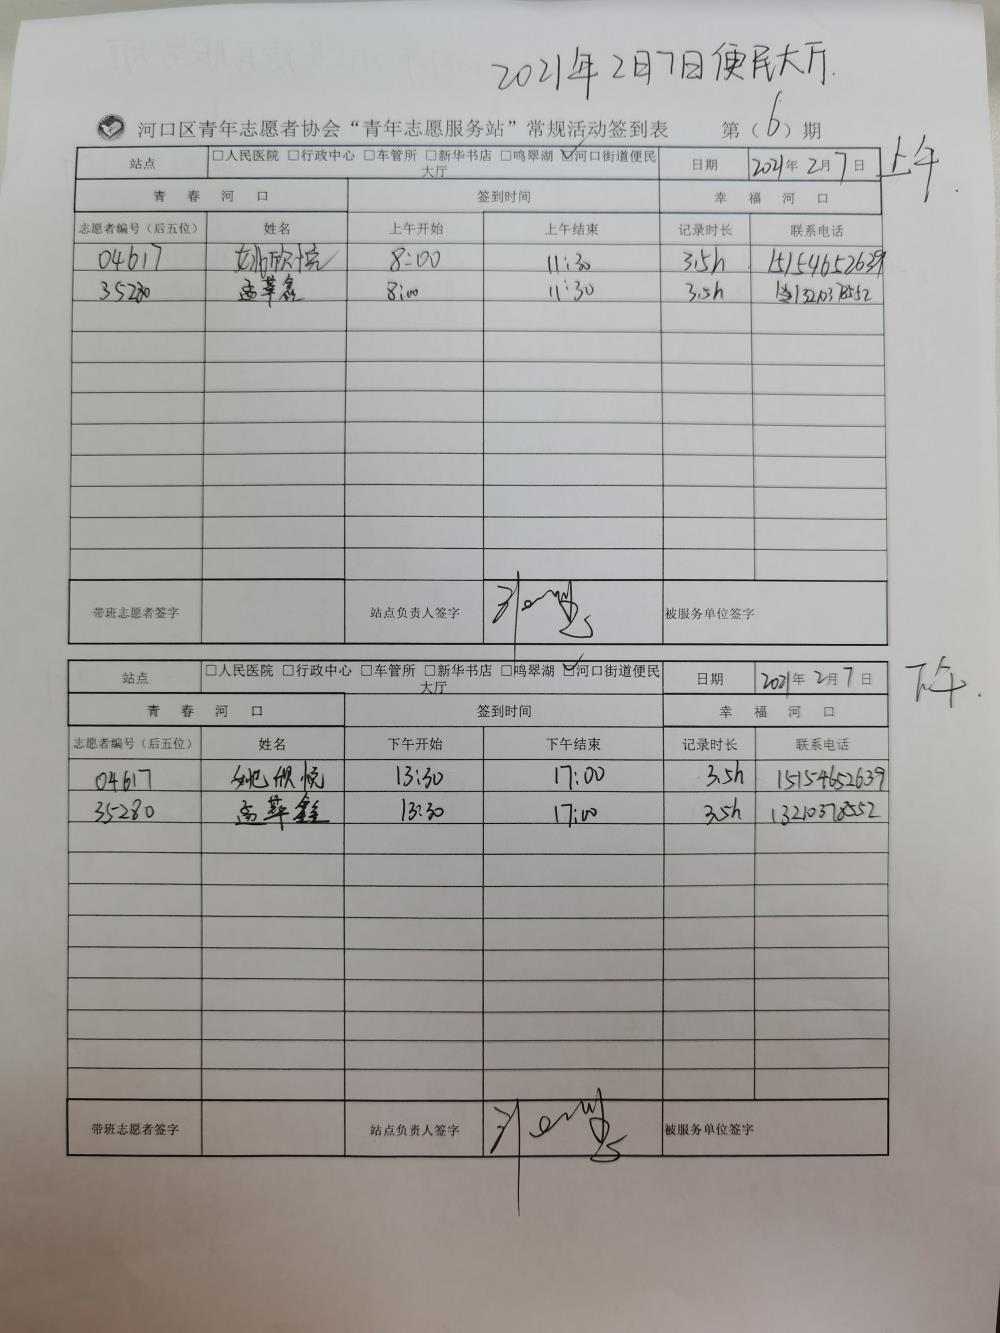 2021年2月7日便民大厅.
河口区青年志愿者协会“青年志愿服务站”常规活动签到表 第（6）期
上午.
站点 □人民医院 □行政中心 □车管所 □新华书店 □鸣翠湖 ☑河口街道便民大厅 日期 2021年2月7日
青 春 河 口 签到时间 幸 福 河 口
志愿者编号（后五位） 姓名 上午开始 上午结束 记录时长 联系电话
04617 姚欣悦 8:00 11:30 3.5h 15154652639
35280 孟苹鑫 8:00 11:30 3.5h 13210378552
带班志愿者签字 站点负责人签字 被服务单位签字
下午.
站点 □人民医院 □行政中心 □车管所 □新华书店 □鸣翠湖 ☑河口街道便民大厅 日期 2021年2月7日
青 春 河 口 签到时间 幸 福 河 口
志愿者编号（后五位） 姓名 下午开始 下午结束 记录时长 联系电话
04617 姚欣悦 13:30 17:00 3.5h 15154652639
35280 孟苹鑫 13:30 17:00 3.5h 13210378552
带班志愿者签字 站点负责人签字 被服务单位签字